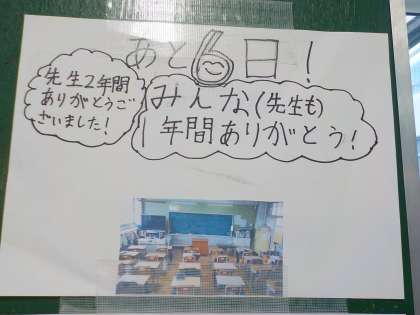 あと6日!
先生2年間
ありがとうご
ざいました!
みんな(先生も)
1年間ありがとう!